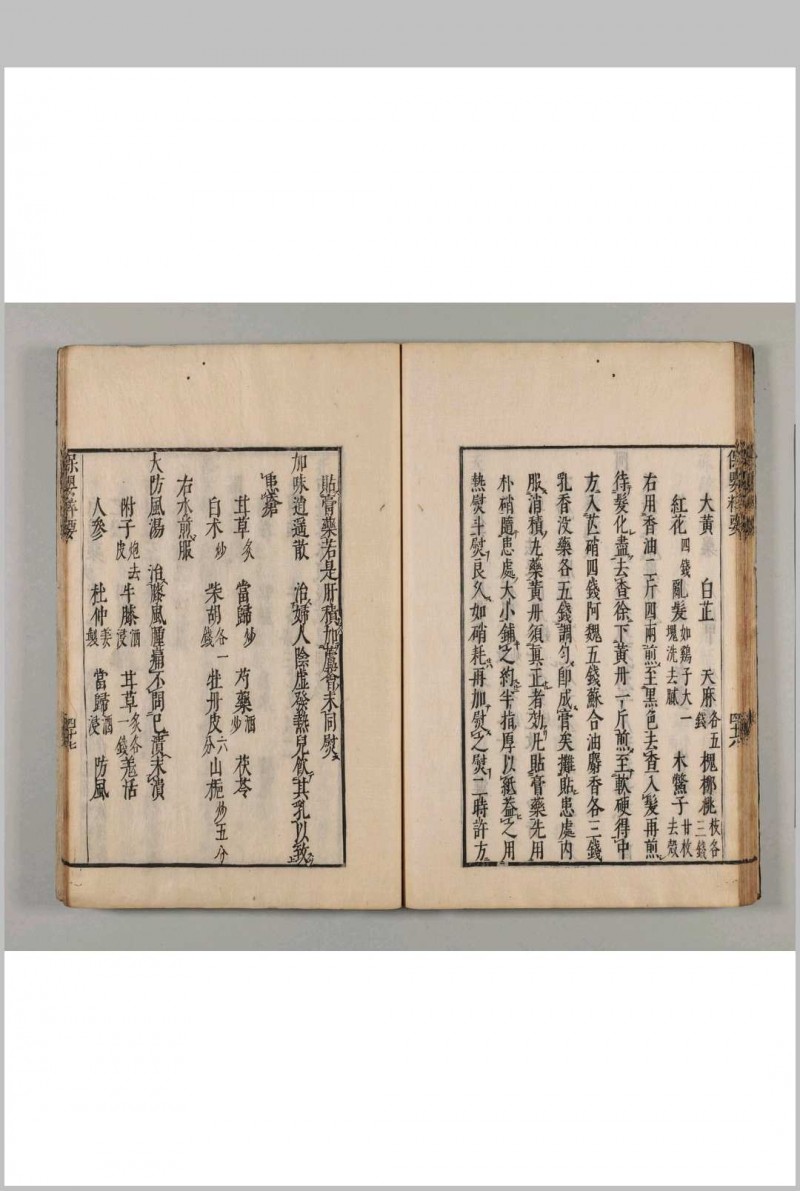 大黃 白芷 天麻各五錢 槐柳桃枝各三錢
紅花四錢 亂髮如鷄子大一塊洗去膩 木鱉子廿枚去殼
右用香油二斤四兩煎至黑色去查入髮再煎
待髮化盡去查徐下黃丹一斤煎至軟硬得中
方入芒硝四錢阿魏五錢蘇合油麝香各三錢
乳香没藥各五錢調勻即成膏矣攤貼患處内
服消積丸藥黃丹須真正者効凡貼膏藥先用
朴硝隨患處大小鋪之約半指厚以紙葢之用
熱熨斗熨良久如硝耗再加熨之熨二時許方
貼膏藥若是肝積加蘆薈末同熨
加味逍遥散 治婦人陰虛發熱兒飲其乳以致
患瘡
甘草炙 當歸炒 芍藥酒炒 茯苓
白术炒 柴胡各一錢 牡丹皮六分 山梔炒五分
右水煎服
大防風湯 治膝風腫痛不問已潰未潰
附子炮去皮 牛膝酒浸 甘草炙各一錢 羗活
人參 杜仲姜製 當歸酒浸 防風
保嬰粹要
四十七